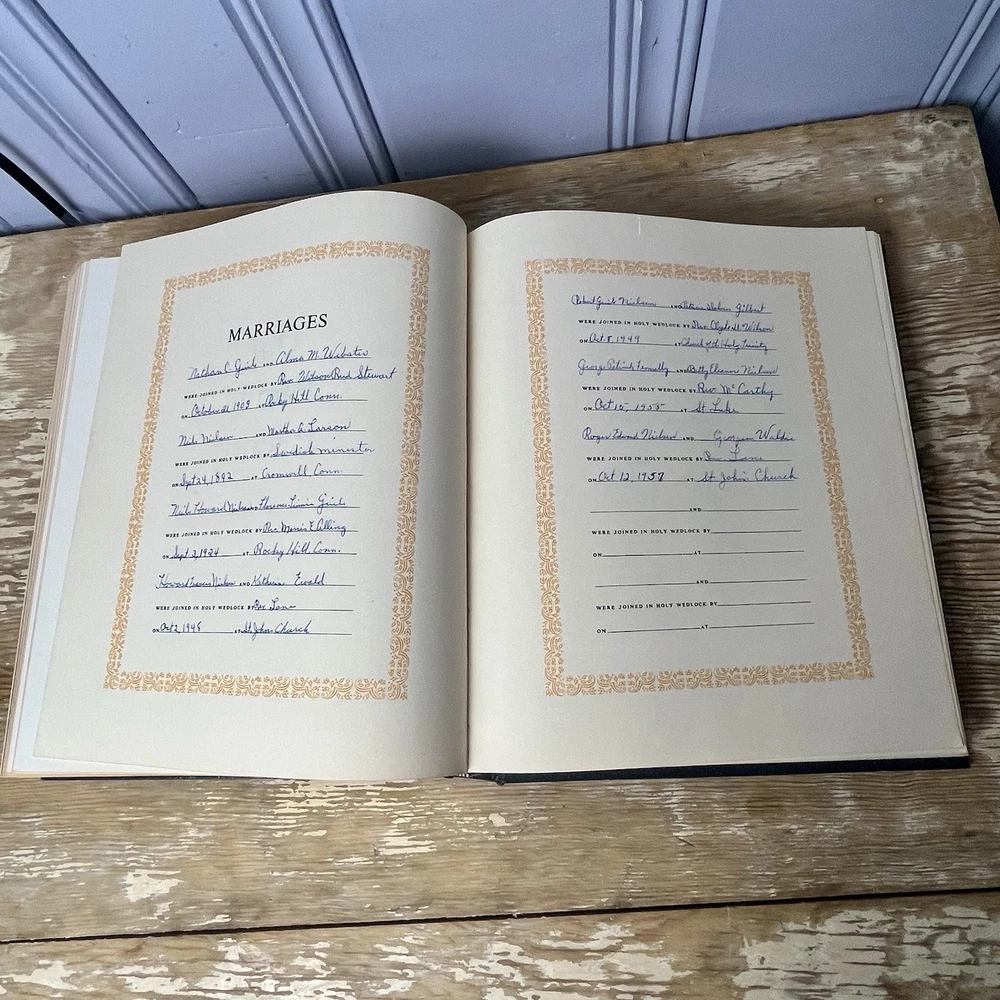 MARRIAGES
Nathan C. AND Alma M. Webster
WERE JOINED IN HOLY WEDLOCK BY Rev. Wilson Reid Stewart
ON October 21 1903 AT Rocky Hill Conn.
Nils Nielsen AND Martha A. Larson
WERE JOINED IN HOLY WEDLOCK BY Swedish minister
ON Sept 24, 1892 AT Cromwell Conn.
Nils Howard Nielsen AND Florence
WERE JOINED IN HOLY WEDLOCK BY Rev. Morris E. Alling
ON Sept. 3, 1924 AT Rocky Hill Conn.
Howard Francis Nielsen AND Katherine Ewald
WERE JOINED IN HOLY WEDLOCK BY Rev Lane
ON Oct 2, 1948 AT St. John Church
Robert Nielsen AND Gilbert
WERE JOINED IN HOLY WEDLOCK BY Rev. Clyde D. Wilson
ON Oct. 8, 1949 AT Church of the Holy Trinity
George Patrick AND Betty Eleanor Nielsen
WERE JOINED IN HOLY WEDLOCK BY Rev Mc Carthy
ON Oct 15, 1955 AT St Luke
Roger Edward Nielsen AND
WERE JOINED IN HOLY WEDLOCK BY Rev. Lane
ON Oct 12, 1957 AT St John's Church
AND
WERE JOINED IN HOLY WEDLOCK BY
ON AT
AND
WERE JOINED IN HOLY WEDLOCK BY
ON AT